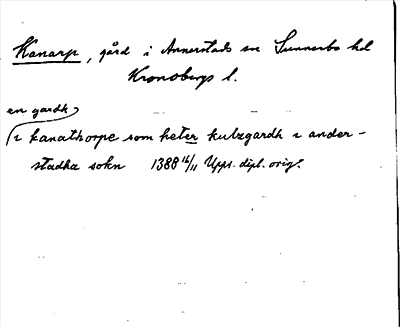 Kanarp, gård i Annerstads sn Sunnerbo hd
Kronobergs l.
en gardh
i kanathorpe som heter kulzgardh i ander-
stadha sokn 1388 16/11 Upps. dipl. orig.